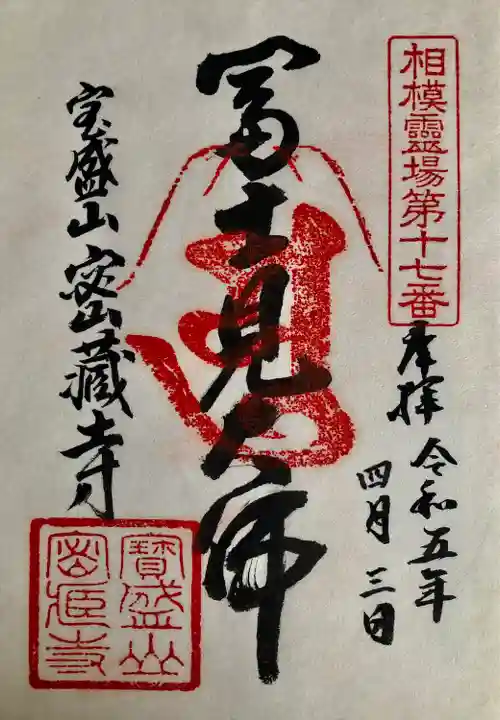 相模靈場第十七番
奉拝
令和五年
四月三日
冨士見大佛
宝盛山密蔵寺
寶盛山
密蔵寺